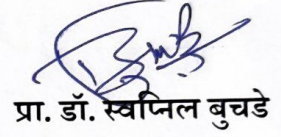 प्रा. डॉ. स्वप्निल बुचडे